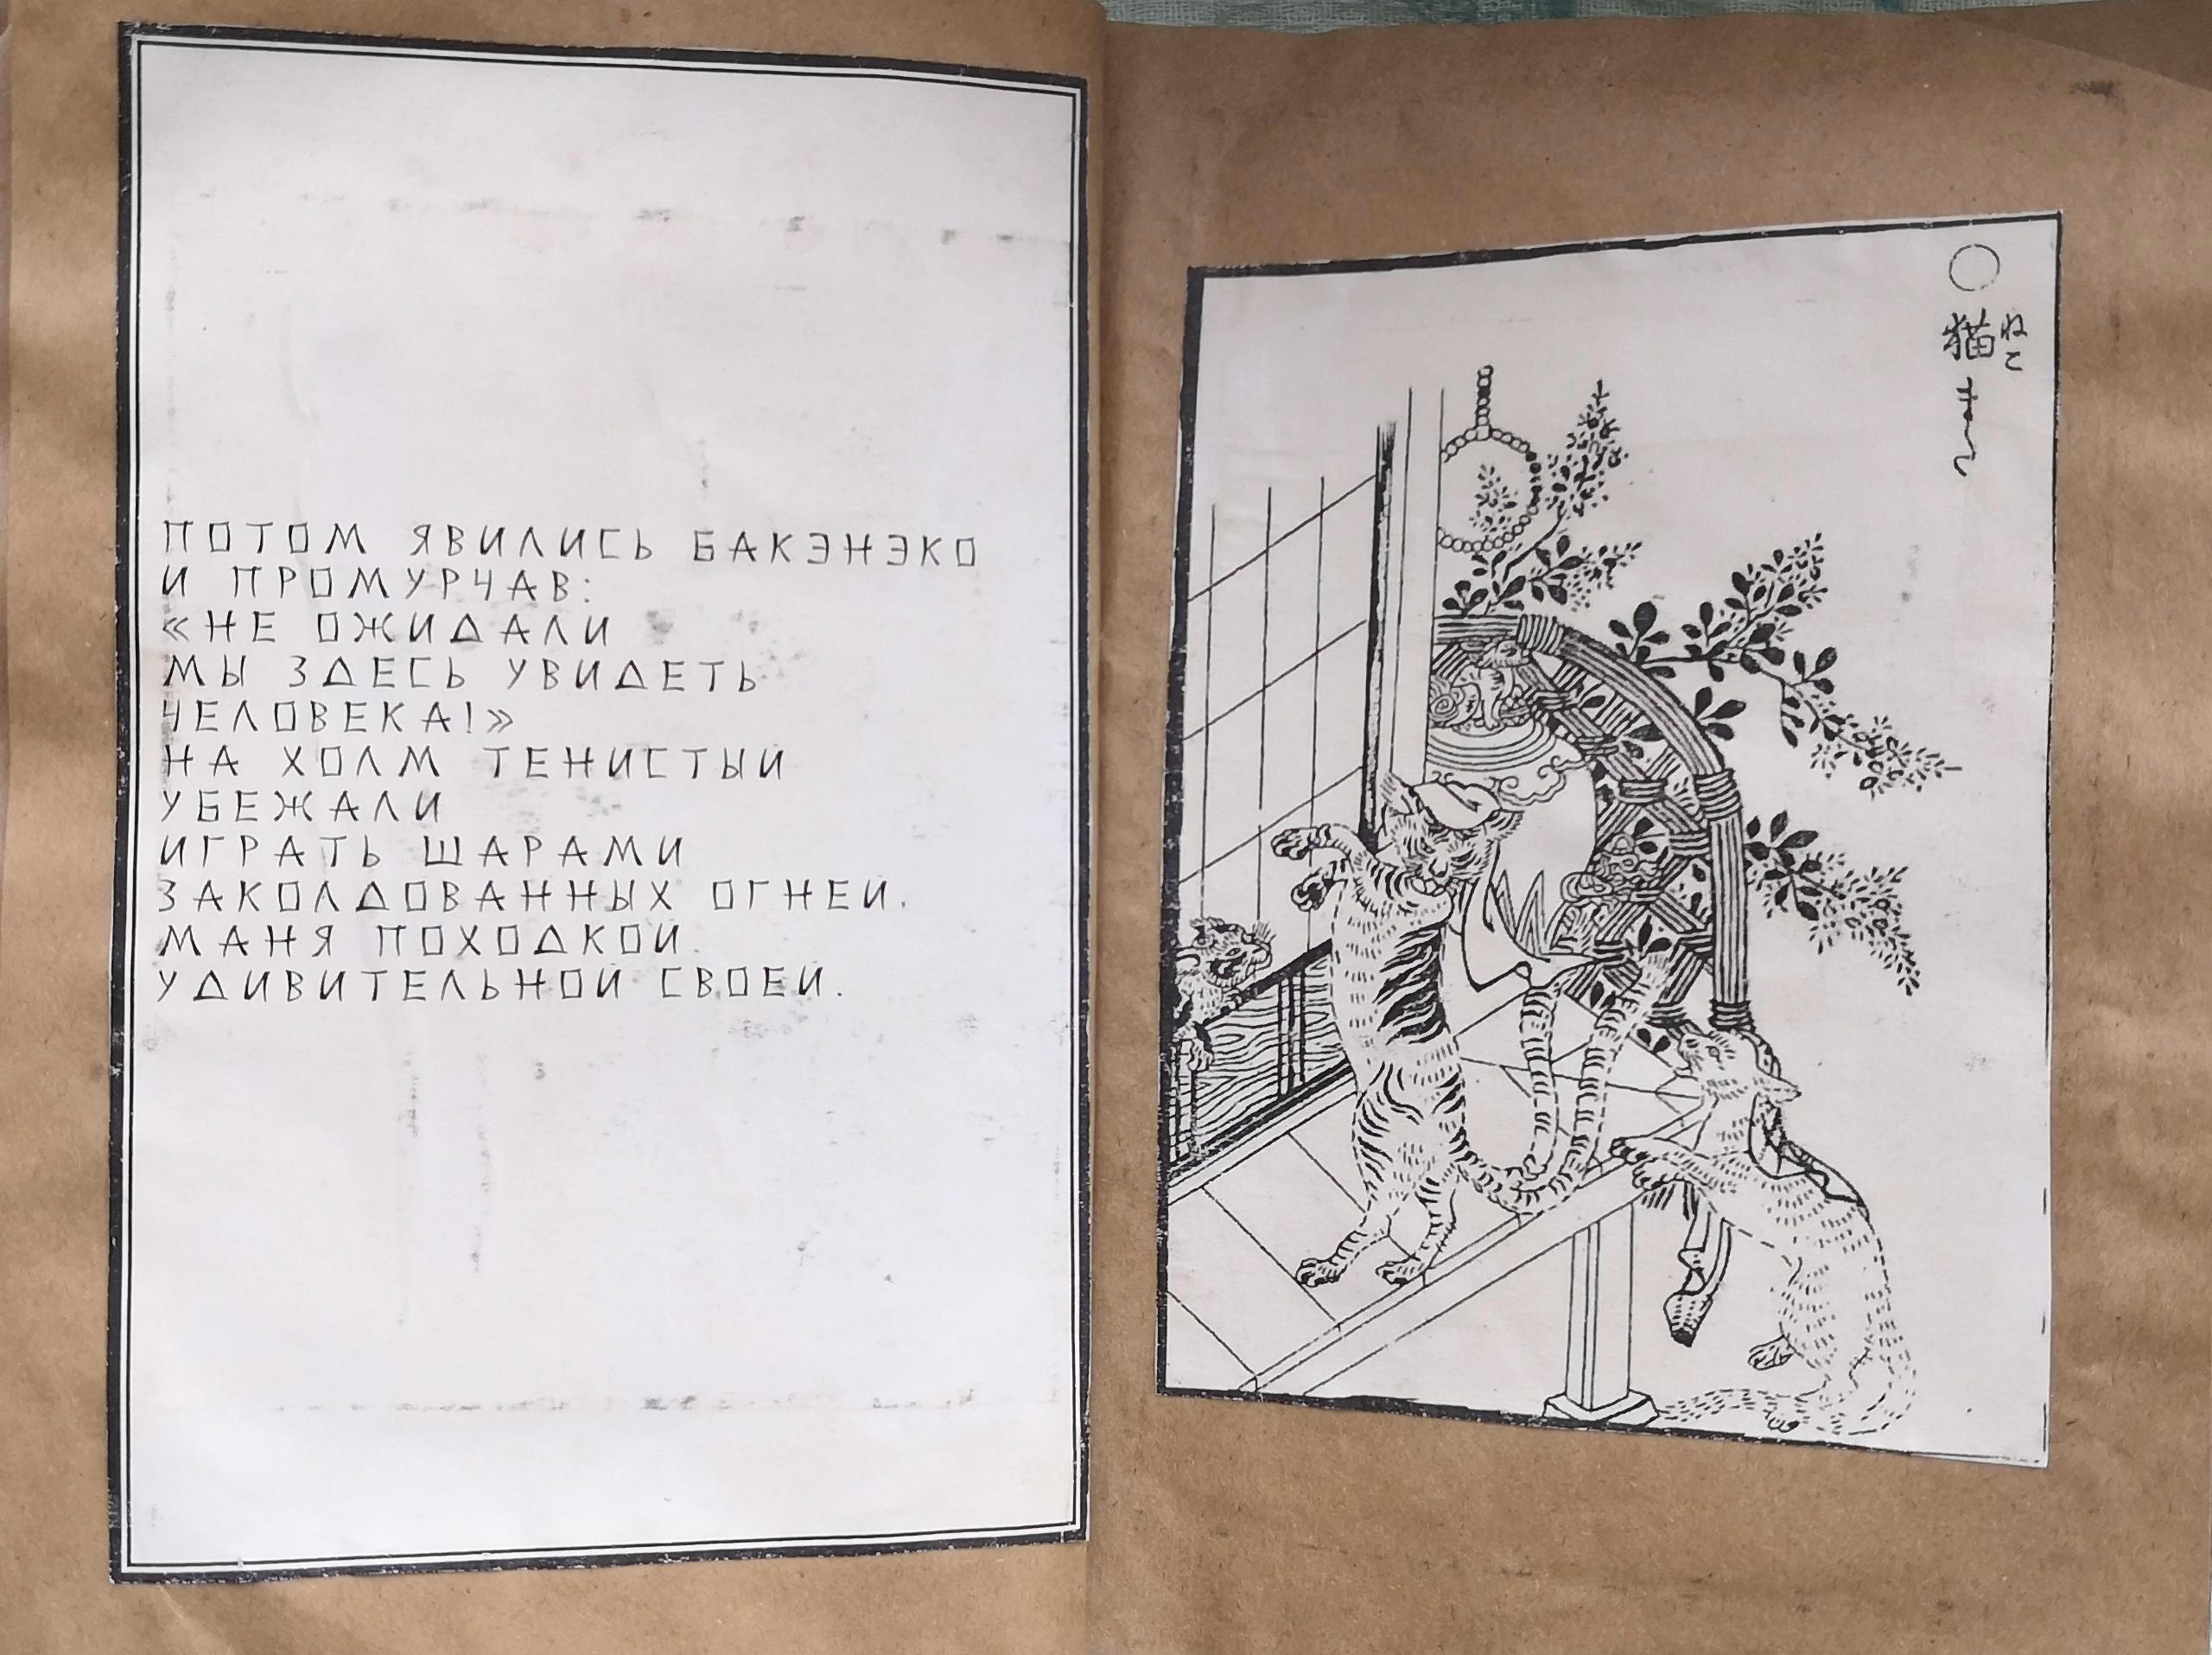 ПОТОМ ЯВИЛИСЬ БАКЭНЭКО
И ПРОМУРЧАВ:
«НЕ ОЖИДАЛИ
МЫ ЗДЕСЬ УВИДЕТЬ
ЧЕЛОВЕКА!»
НА ХОЛМ ТЕНИСТЫЙ
УБЕЖАЛИ
ИГРАТЬ ШАРАМИ
ЗАКОЛДОВАННЫХ ОГНЕЙ.
МАНЯ ПОХОДКОЙ
УДИВИТЕЛЬНОЙ СВОЕЙ.
猫また
ねこ